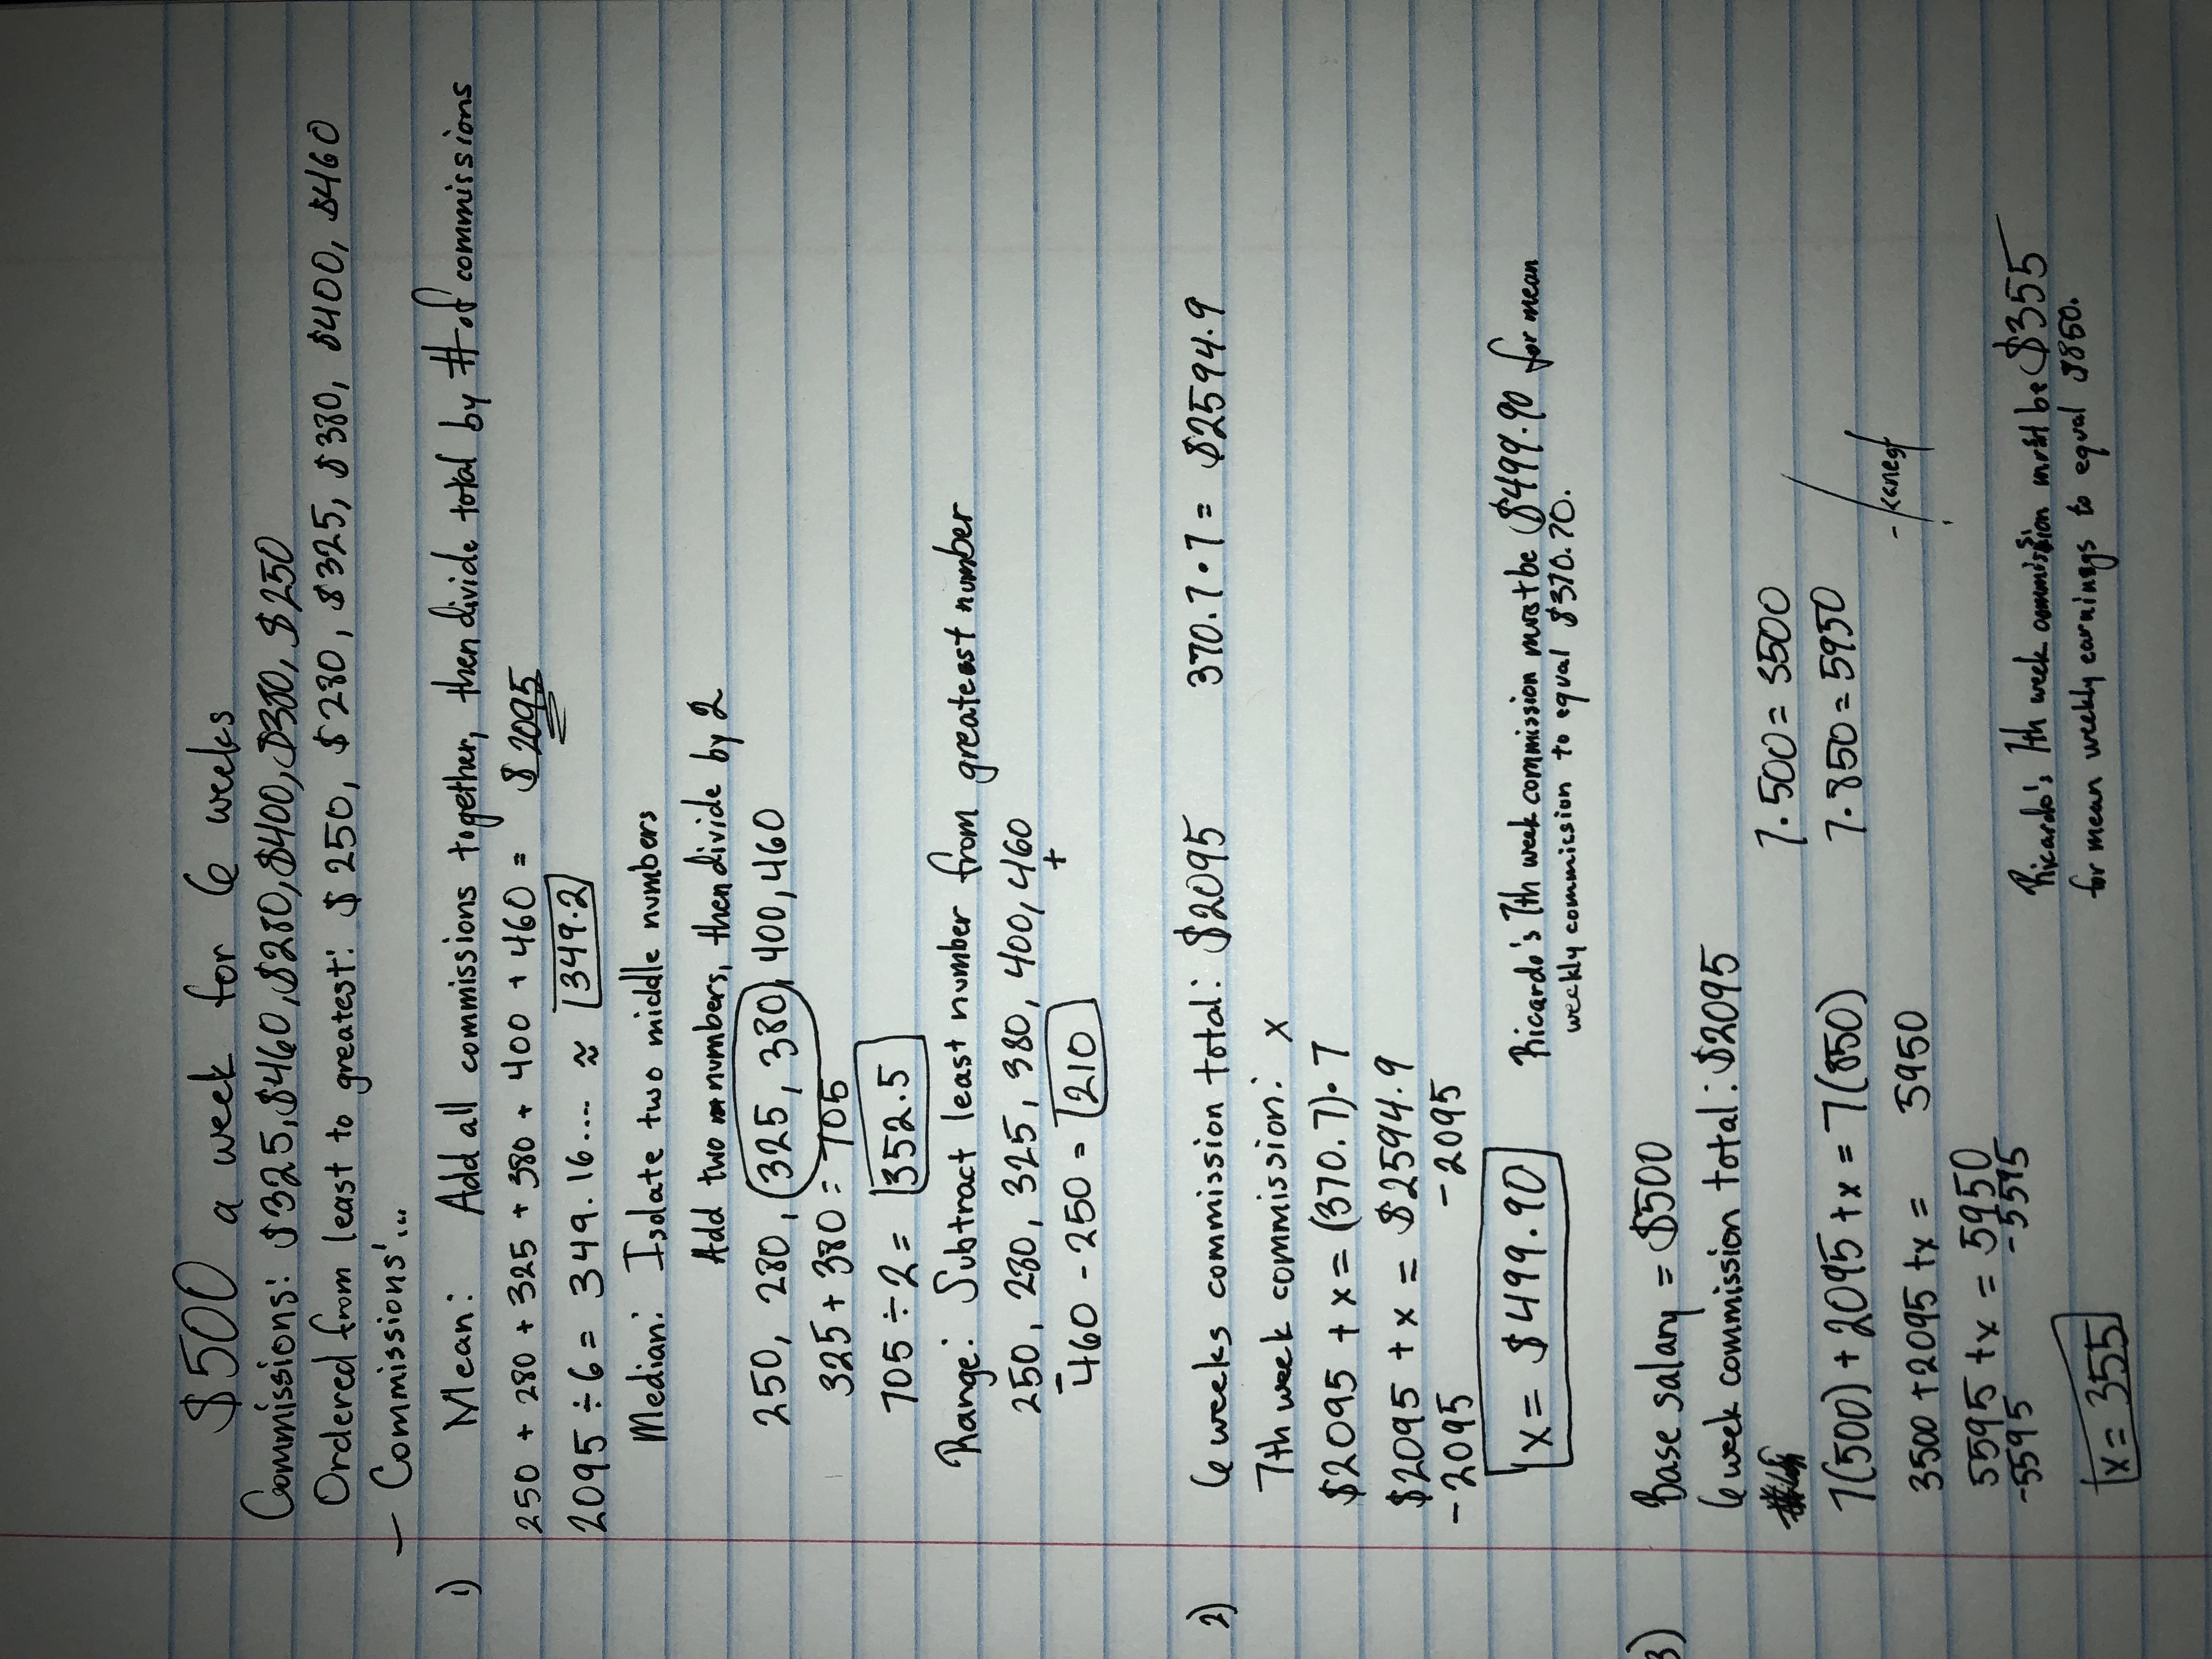 $500 a week for 6 weeks
Commissions: $325, $460, $280, $400, $380, $250
Ordered from least to greatest: $250, $280, $325, $380, $400, $460
- Commissions'...
1) Mean: Add all commissions together, then divide total by # of commissions
250 + 280 + 325 + 380 + 400 + 460 = $2095
2095 ÷ 6 = 349.16.... ≈ 349.2
Median: Isolate two middle numbers
Add two numbers, then divide by 2
250, 280, 325, 380, 400, 460
325 + 380 = 705
705 ÷ 2 = 352.5
Range: Subtract least number from greatest number
250, 280, 325, 380, 400, 460
- +
460 - 250 = 210
2) 6 weeks commission total: $2095 370.7 • 7 = $2594.9
7th week commission: x
$2095 + x = (370.7) • 7
$2095 + x = $2594.9
-2095 -2095
x = $499.90
Ricardo's 7th week commission must be $499.90 for mean
weekly commission to equal $370.70.
3) Base salary = $500
6 week commission total: $2095
7 • 500 = 3500
7(500) + 2095 + x = 7(850) 7 • 850 = 5950
3500 + 2095 + x = 5950
5595 + x = 5950
-5595 -5595
x = 355
Ricardo's 7th week commission must be $355
for mean weekly earnings to equal $850.